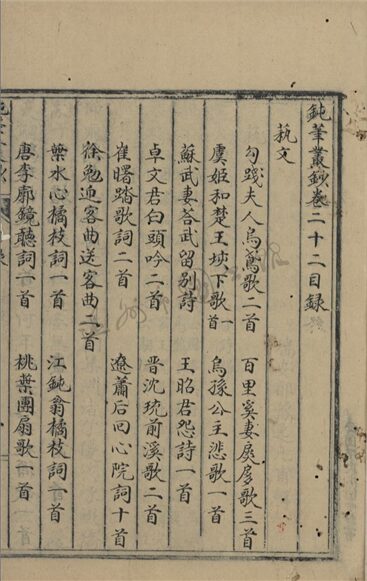 鈍筆叢鈔卷二十二目録
執文
勾踐夫人烏鳶歌二首 百里奚妻扊扅歌三首
虞姬和楚王垓下歌一首 烏孫公主悲歌一首
蘇武妻荅武留别詩 王昭君怨詩一首
卓文君白頭吟二首 晉沈玩前溪歌二首
崔曙踏歌詞二首 遼蕭后回心院詞十首
徐勉迎客曲送客曲二首
葉水心橘枝詞一首 江鈍翁橘枝詞一首
唐李廓鏡聽詞一首 桃葉團扇歌一首